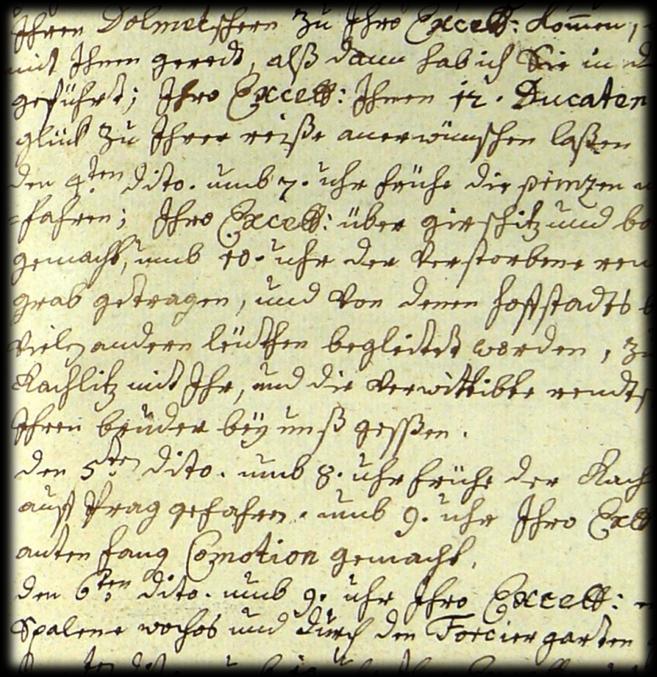 Ihren Dolmetschern zu Ihro Excell: kom̄en,
mit Ihnen geredt, alß dann hab ich Sie in
geführt; Ihro Excell: Ihnen 12. Ducaten
glück zu Ihrer reiße anerwünschen laßen
den 4ten dito. umb 7. uhr frühe die prinzen
fahren; Ihro Excell: über girschitz und
gemacht, umb 10. uhr der verstorbene
grab getragen, und von denen hoffstadts
vielen andern leüthen begleitet worden,
Rachlitz mit Ihr, und die verwittibte
Ihren brüder beÿ unß gesßen.
den 5ten dito. umb 8. uhr frühe der
auß Prag gefahren. umb 9. uhr Ihro
anten fang Comotion gemacht.
den 6ten dito. umb 9. uhr Ihro Excell:
Spalene wochos und durch den garten